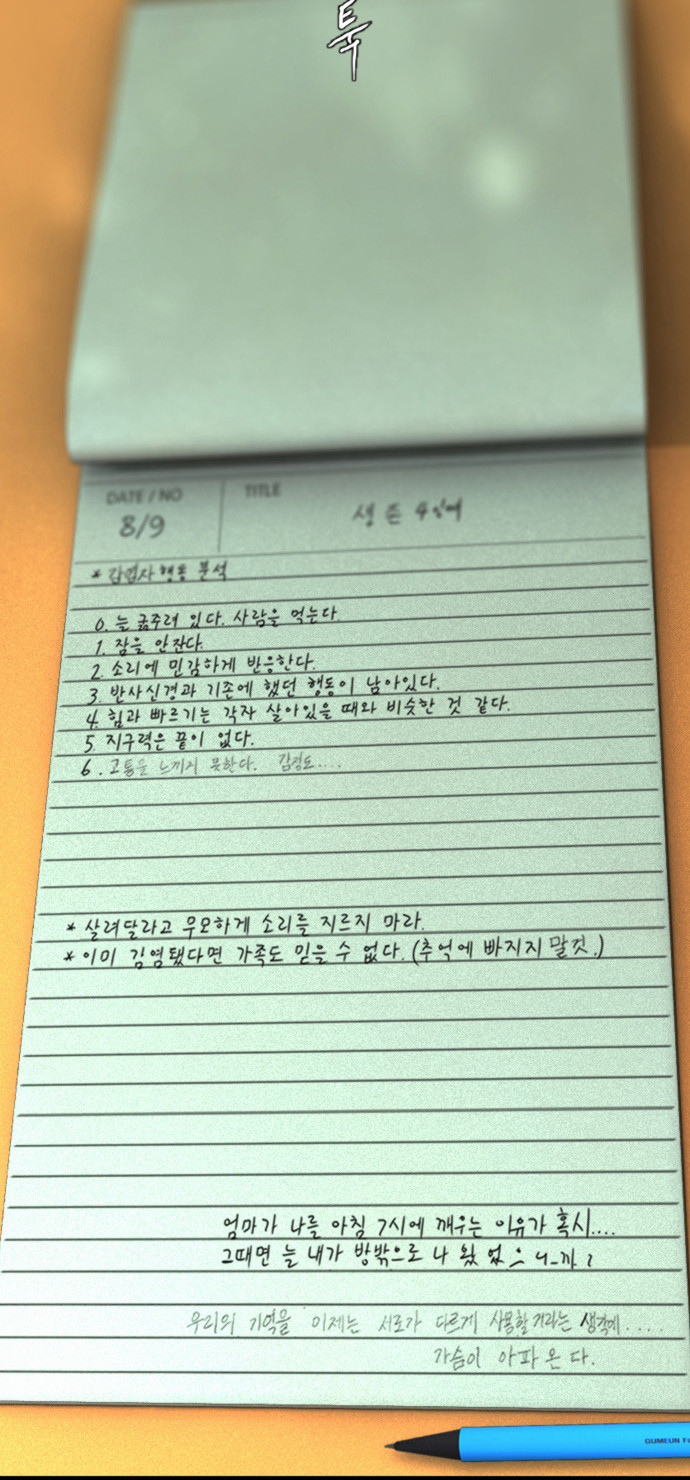 툭
DATE / NO
TITLE
8/9
생존 4일째
* 감염자 행동 분석
0. 늘 굶주려 있다. 사람을 먹는다.
1. 잠을 안잔다.
2. 소리에 민감하게 반응한다.
3. 반사신경과 기존에 했던 행동이 남아있다.
4. 힘과 빠르기는 각자 살아있을 때와 비슷한 것 같다.
5. 지구력은 끝이 없다.
6. 고통을 느끼지 못한다. 감정도....
* 살려달라고 무모하게 소리를 지르지 마라.
* 이미 감염됐다면 가족도 믿을 수 없다. (추억에 빠지지 말것.)
엄마가 나를 아침 7시에 깨우는 이유가 혹시....
그때면 늘 내가 방밖으로 나왔었으니-까?
우리의 기억을 이제는 서로가 다르게 사용할거라는 생각에....
가슴이 아파온다.